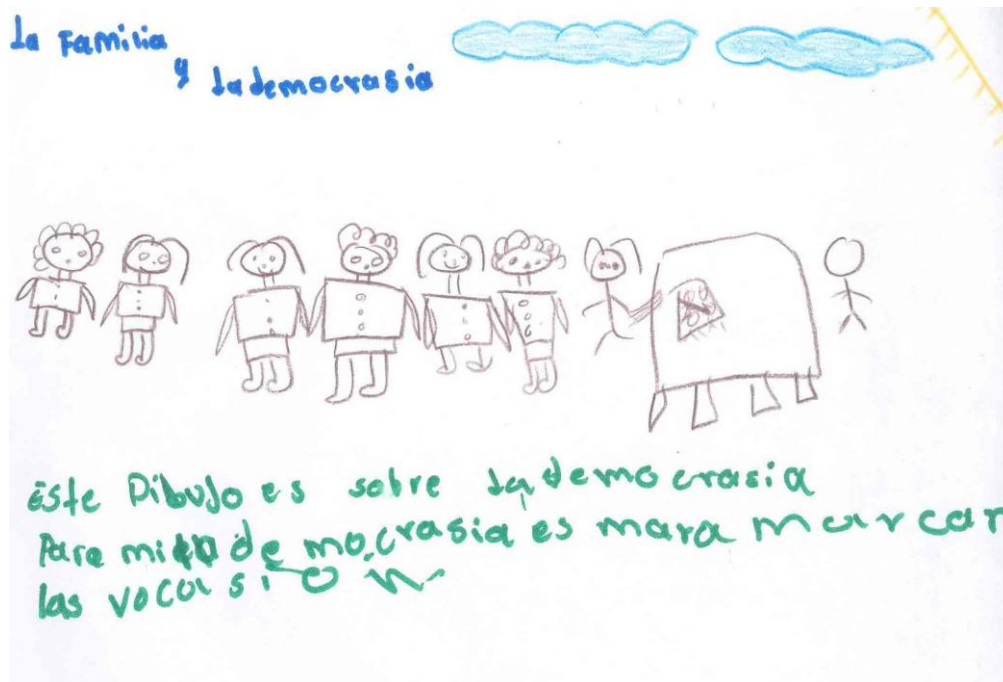 La Familia
y La democrasia
Este Dibujo es sobre La democrasia
Para mi la de mo,crasia es mara marcar
las vocasion